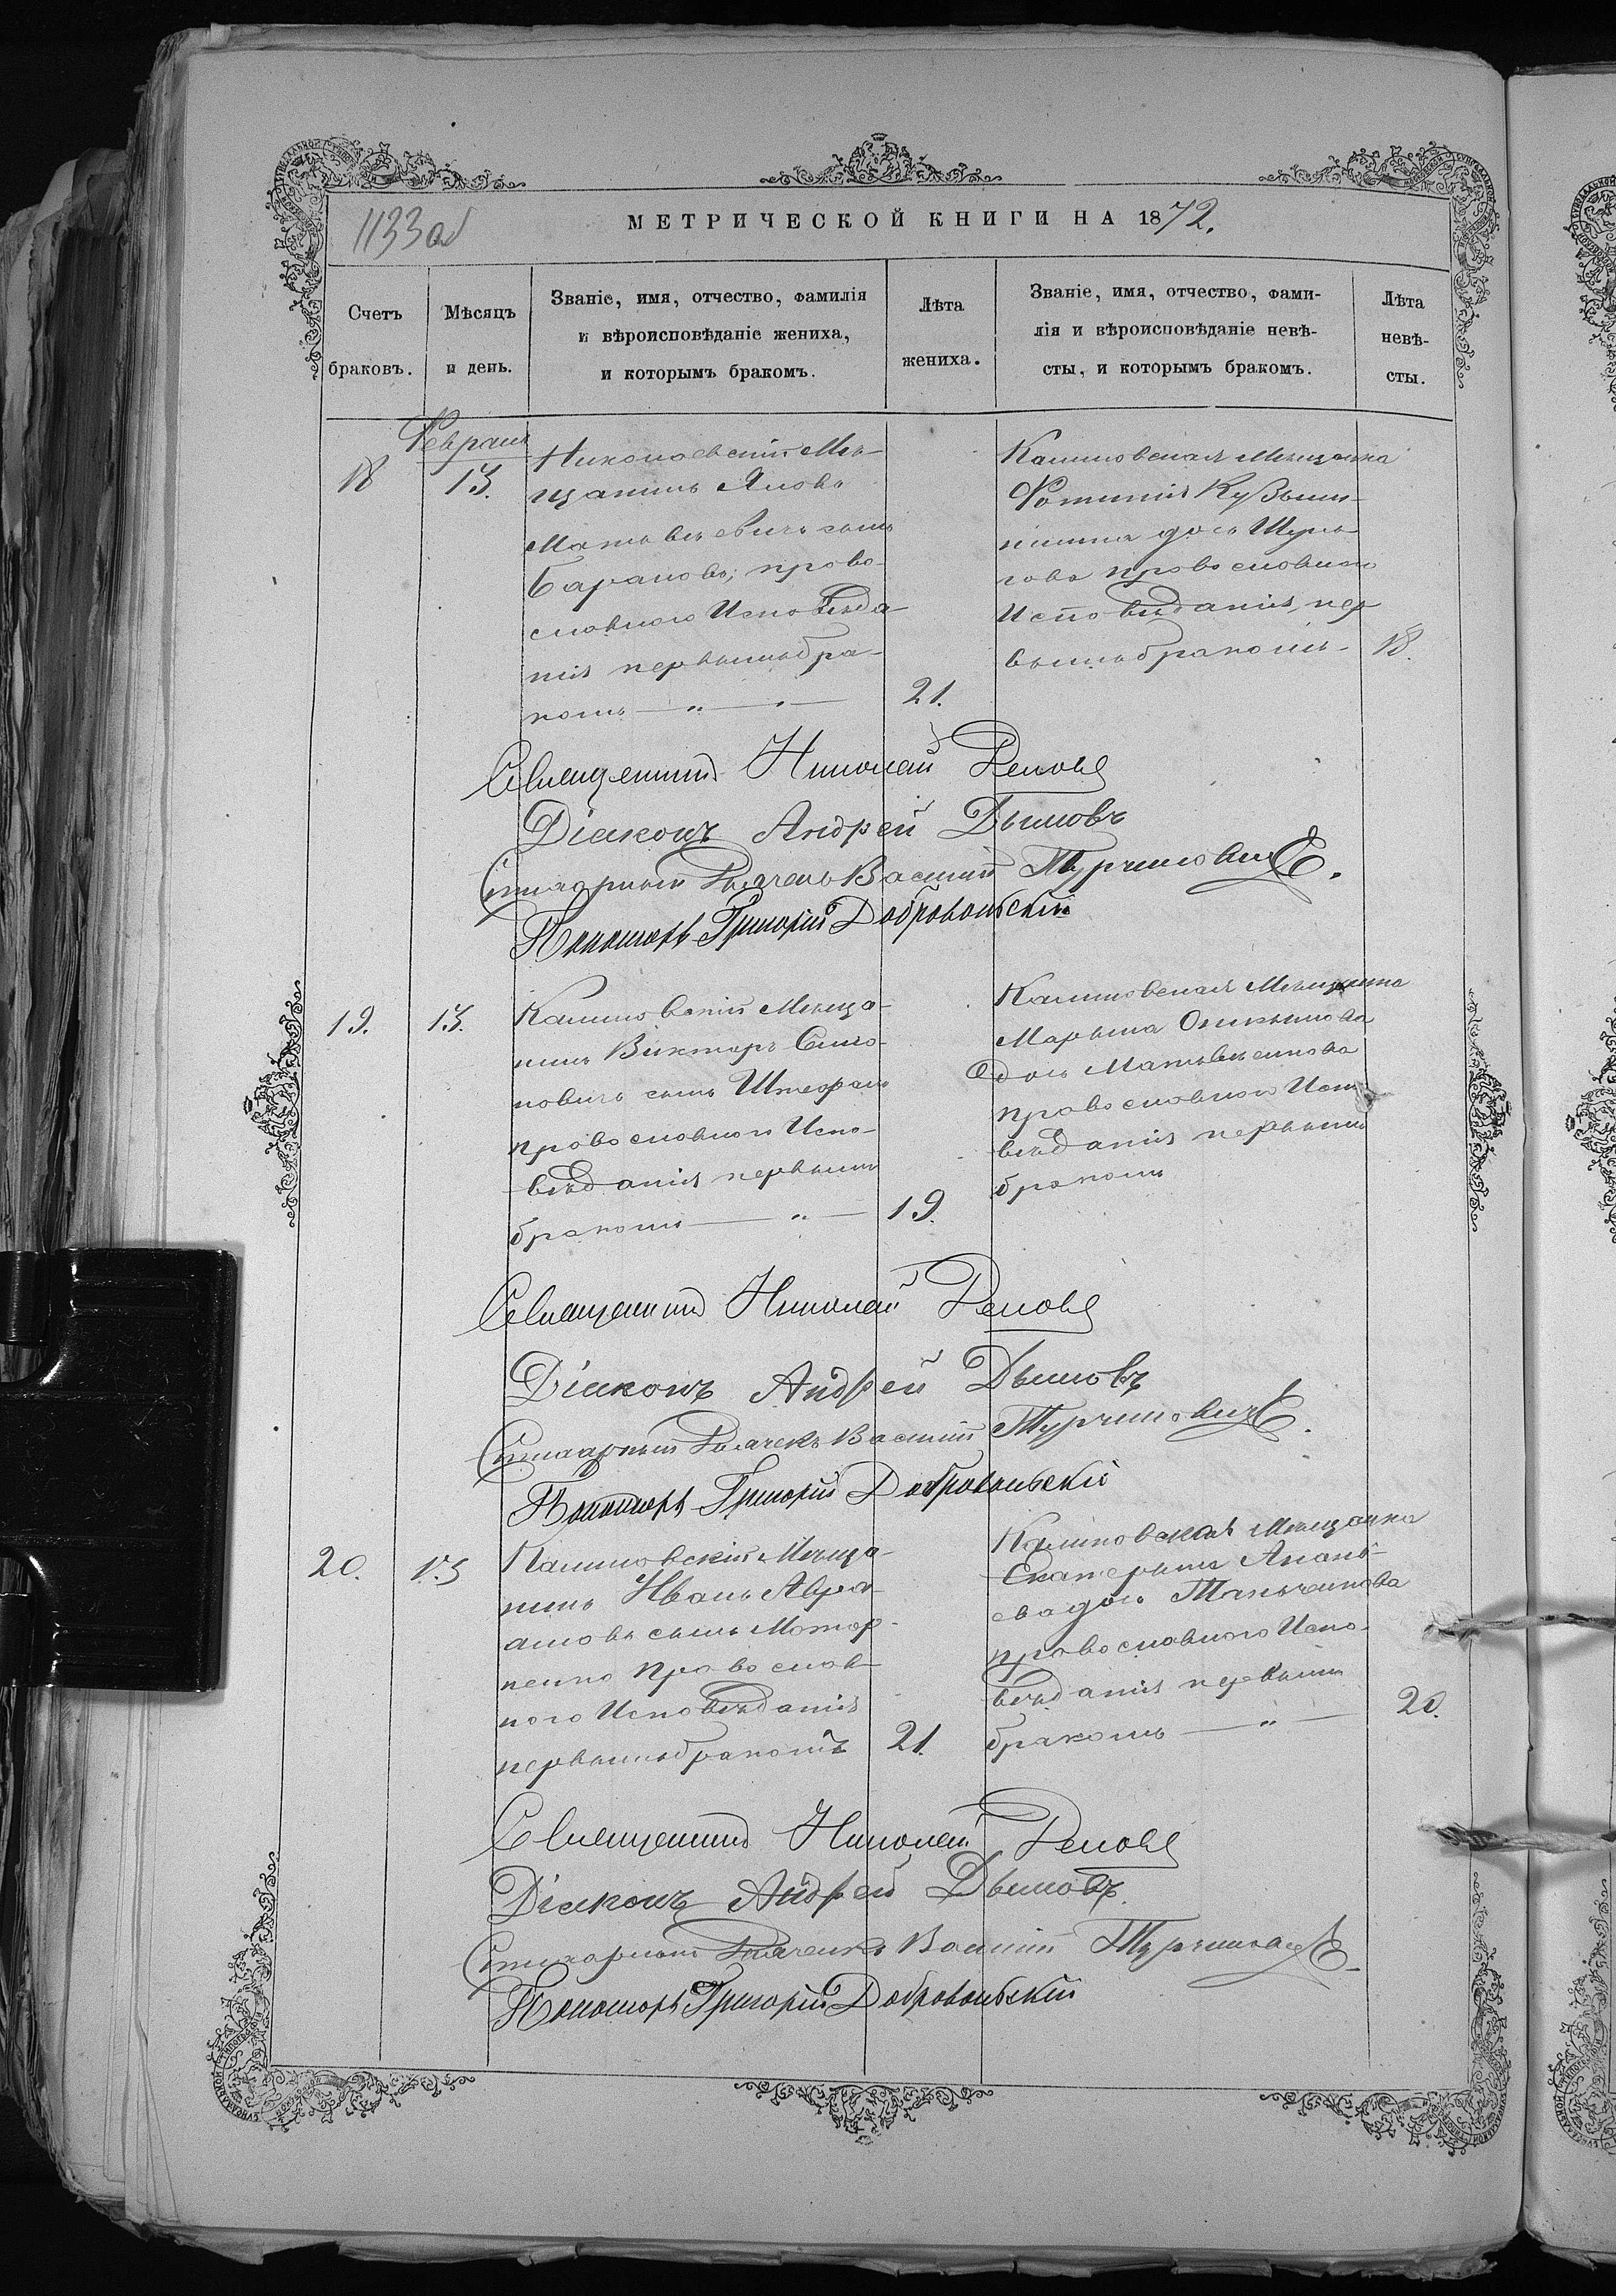 1133 об
МЕТРИЧЕСКОЙ КНИГИ НА 1872.
Счетъ
браковъ.
Мѣсяцъ
и день.
Званіе, имя, отчество, фамилія
и вѣроисповѣданіе жениха,
и которымъ бракомъ.
Лѣта
жениха.
Званіе, имя, отчество, фами-
лія и вѣроисповѣданіе невѣ-
сты, и которымъ бракомъ.
Лѣта
невѣ-
сты.
Февраль
18
13.
Николаевскій Мѣ-
щанинъ Яковъ
Матвѣевичъ сынъ
Барановъ, право-
славного Исповѣда-
нія первымъ бра-
комъ — " — " —
21.
Калиновская Мѣщанка
Фотинія Кузьми-
нишна дочь Шуль-
гова православного
Исповѣданія, пер
вымъ бракомъ —
18.
Священникъ Николай
Діаконъ Андрей Дымовъ
Стихарный Василій Турчиновичъ.
Пономарь Григорій Добровольскій
19.
13.
Калиновскій Мѣща-
нинъ Викторъ Симо-
новичъ сынъ
православного Испо-
вѣданія первымъ
бракомъ — " —
19.
Калиновская Мѣщанка
Марьяна
дочь
православного Испо
вѣданія первымъ
бракомъ
Священникъ Николай
Діаконъ Андрей Дымовъ
Стихарный Василій Турчиновичъ.
Пономарь Григорій Добровольскій
20.
13
Калиновскій Мѣща-
нинъ Иванъ Авра-
амовъ сынъ Мотор-
ненко Православ-
ного Исповѣданія
первымъ бракомъ
21.
Калиновская Мѣщанка
Екатерина Анань-
ева дочь
православного Испо-
вѣданія первымъ
бракомъ — " —
20.
Священникъ Николай
Діаконъ Андрей Дымовъ.
Стихарный Василій Турчиновичъ.
Пономарь Григорій Добровольскій